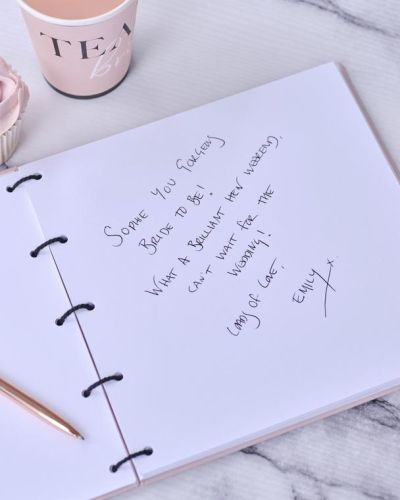 TEA
SOPHIE YOU GORGEOUS
BRIDE TO BE!
WHAT A BRILLIANT HEN WEEKEND,
CAN'T WAIT FOR THE
WEDDING!
LOADS OF LOVE,
EMILY x.